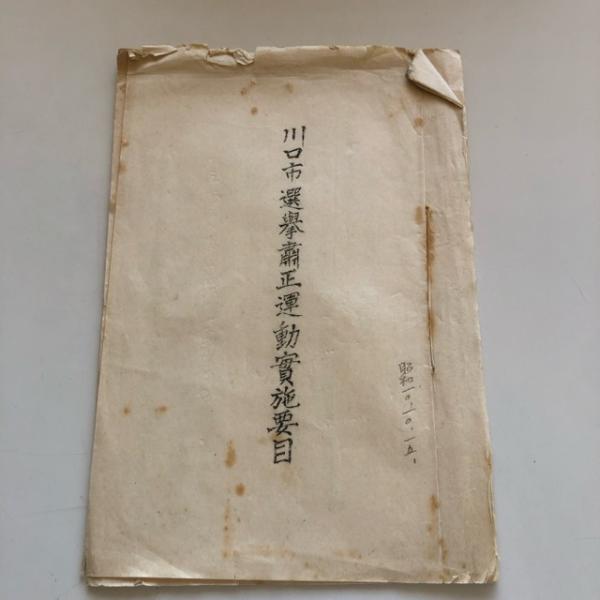 川口市選擧肅正運動實施要目
昭和一〇、一〇、一五、